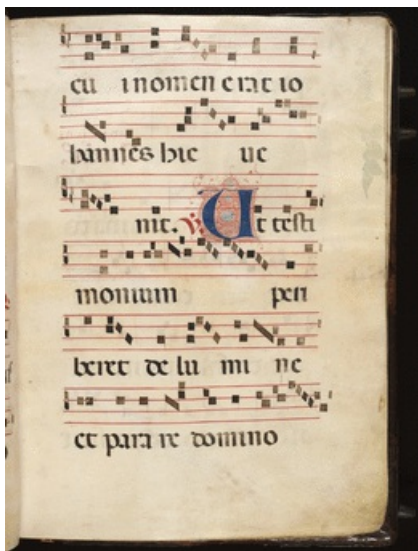 cu i nomen erat io
hannes hic ue
nit. V. Ut testi
monium peri
beret de lu mi ne
et para re domino